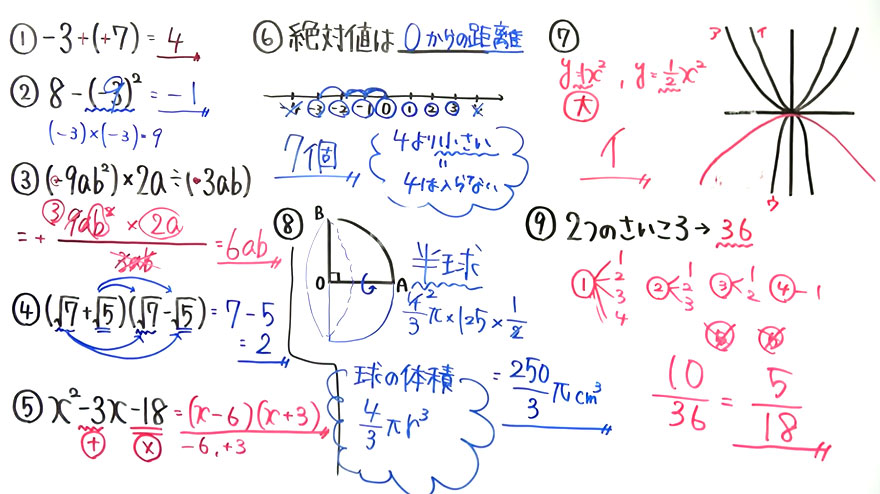 ① -3+(+7) = 4
② 8-(-3)² = -1
(-3)×(-3)=9
③ (-9ab²)×2a÷(-3ab)
③
= + 9ab² × 2a / 3ab = 6ab
④ (√7+√5)(√7-√5) = 7-5
= 2
⑤ x²-3x-18 = (x-6)(x+3)
+ × -6, +3
⑥ 絶対値は 0からの距離
-4 -3 -2 -1 0 1 2 3 4
7個
4より小さい
〃
4は入らない
⑧
B
O A
半球
4/3 π×125×1/2
2
球の体積
4/3 πr³
= 250/3 π cm³
⑦
ア イ
y=1x², y=1/2x²
大
イ
ウ
⑨ 2つのさいころ→ 36
① 1 2 3 4
② 1 2 3
③ 1 2
④ 1
⑤ ⑥
10/36 = 5/18